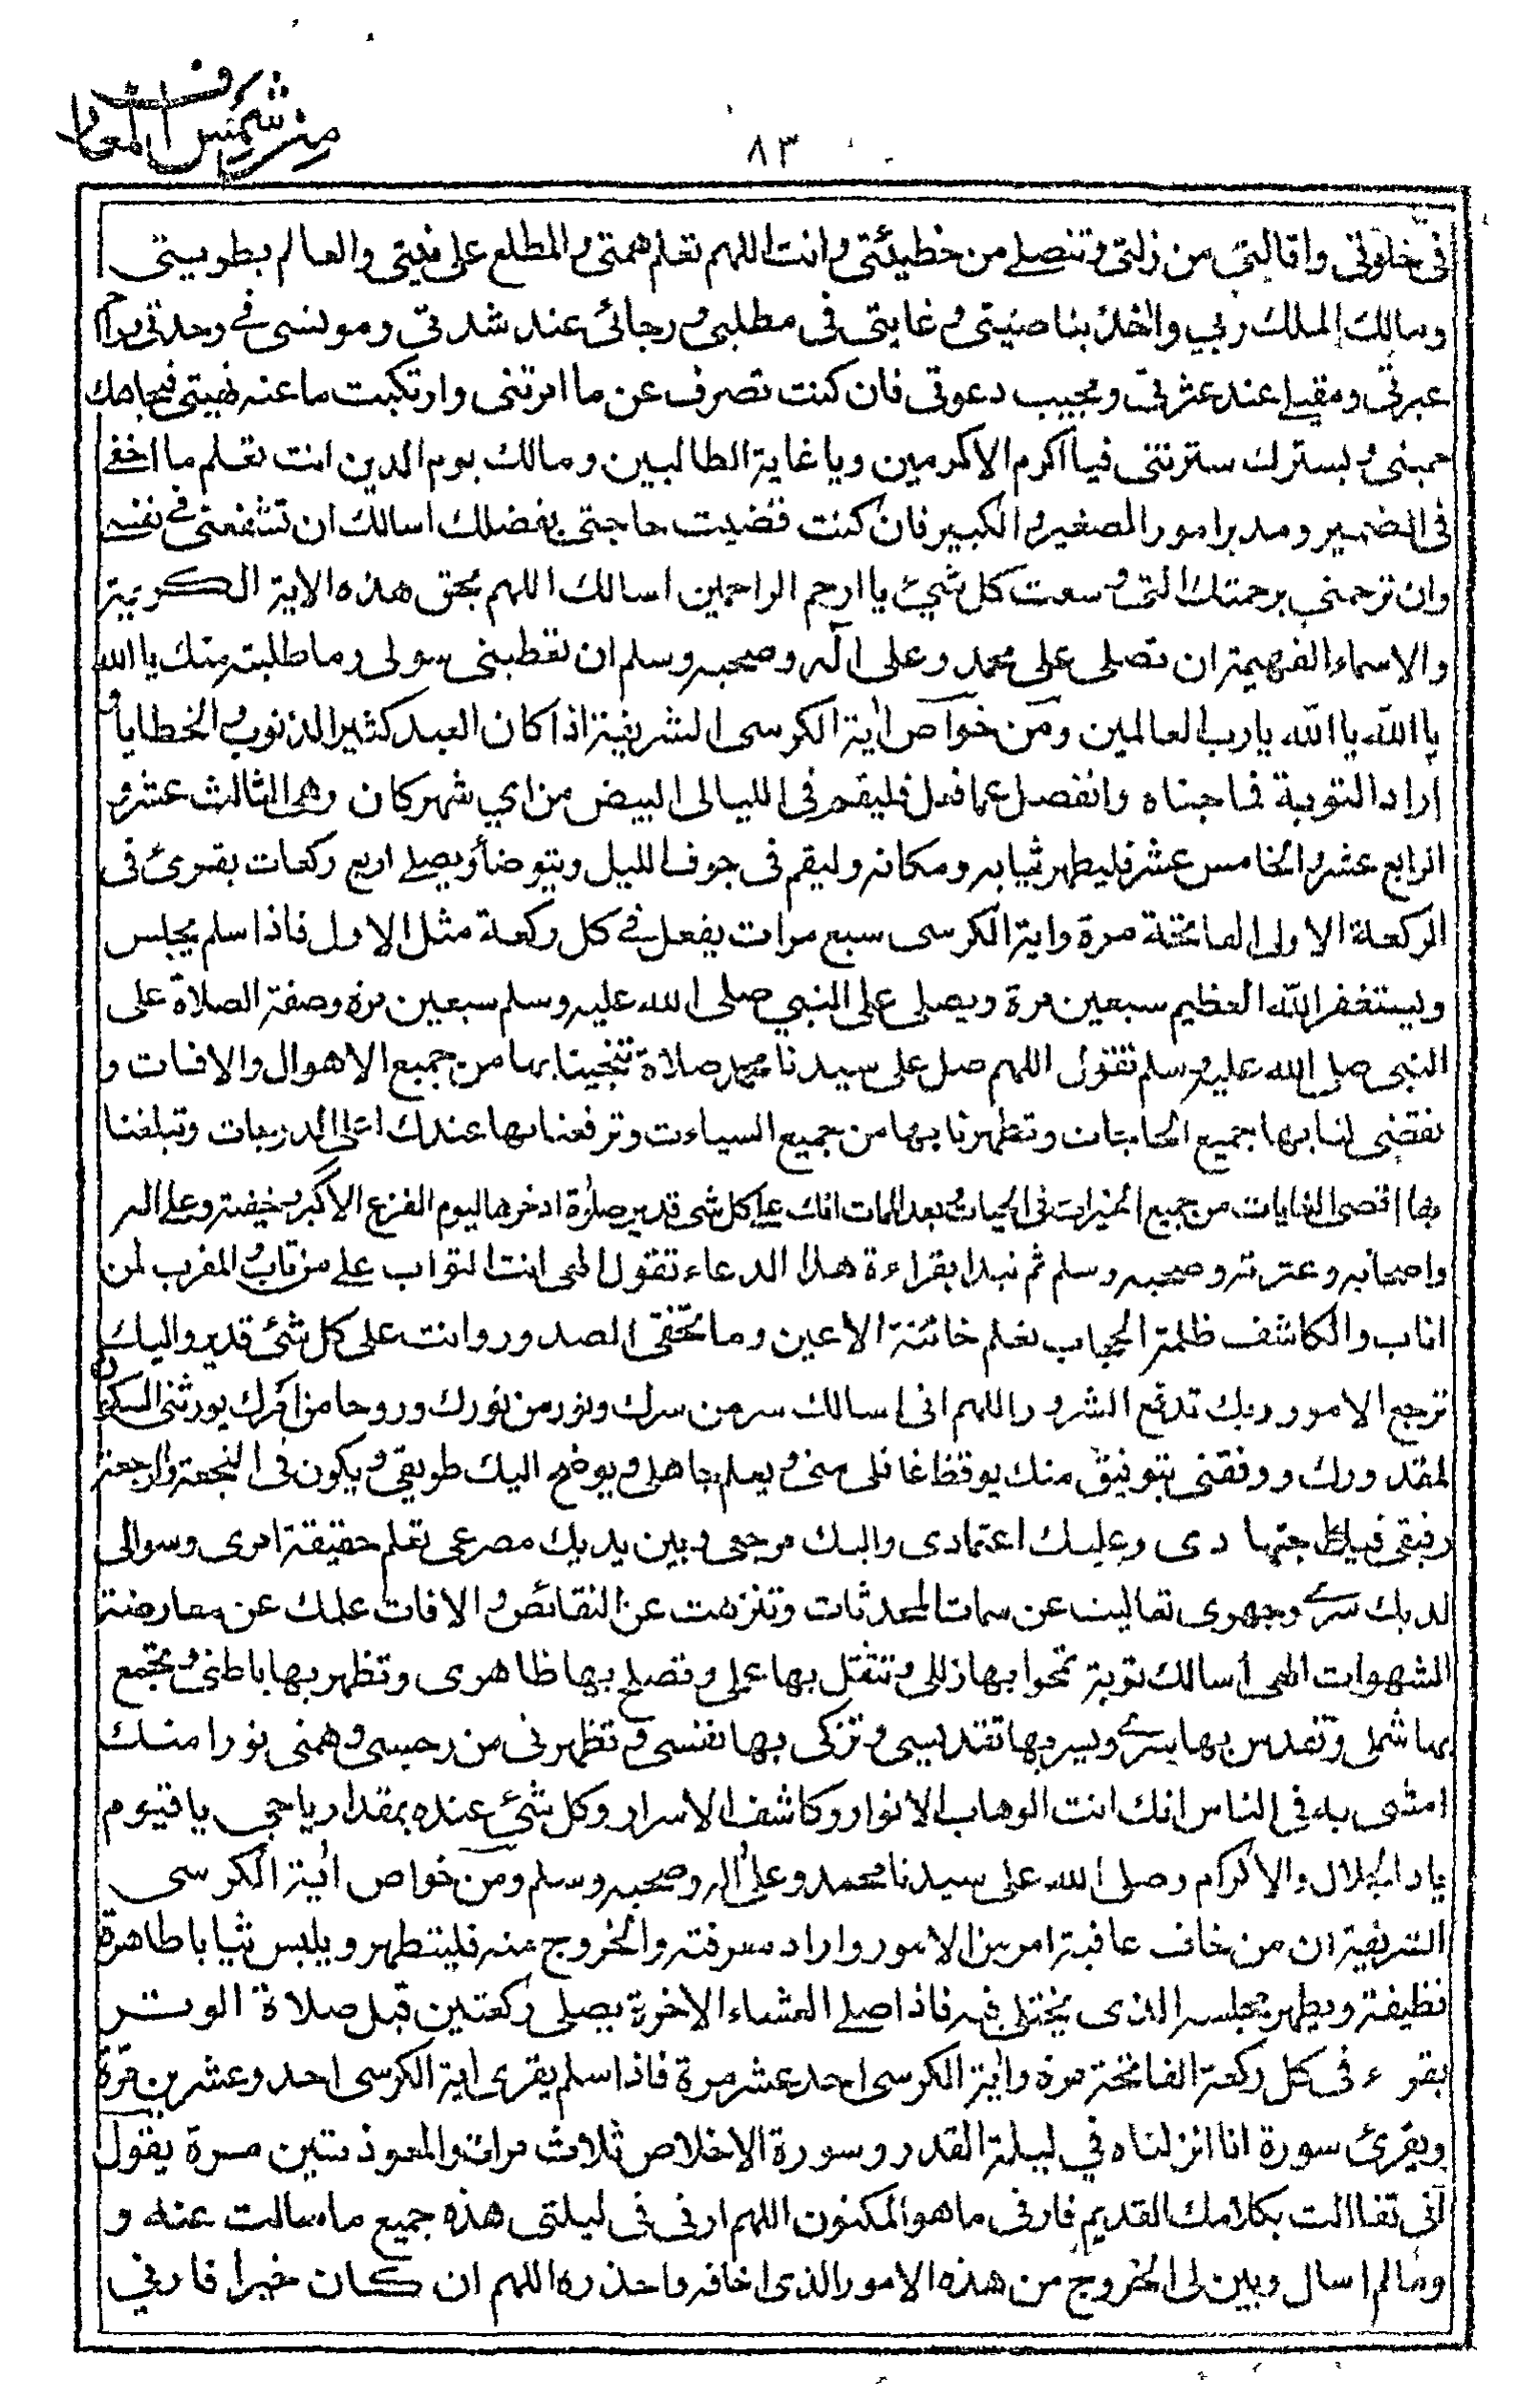 من شمس المعارف
٨٣
في خلوتي واقالتي من زلتي وتنصلي من خطيئتي وانت اللهم تعلم همتي والمطلع على نيتي والعالم بطويتي
ومالك الملك ربي والخذ بناصيتي وغايتي في مطلبي ورجائي عند شدتي ومونسي في وحدتي وراحم
عبرتي ومقيلي عند عثرتي ومجيب دعوتي فان كنت تصرف عن ما امرتني وارتكبت ما عنه نهيتي فبجاهك
حميني وبسترك سترتني فيا اكرم الاكرمين ويا غاية الطالبين ومالك يوم الدين انت تعلم ما اخفي
في الضمير ومدبر امور الصغير والكبير فان كنت قضيت حاجتي بفضلك اسالك ان تشفعني في نفسي
وان ترحمني برحمتك التي وسعت كل شيئ يا ارحم الراحمين اسالك اللهم بحق هذه الاية الكريمة
والاسماء الفهيمة ان تصلي على محمد وعلى اله وصحبه وسلم ان تعطيني سولي وما طلبته منك يا الله
يا الله يا الله يا رب العالمين ومن خواص اية الكرسي الشريفة اذا كان العبد كثير الذنوب والخطايا و
اراد التوبة فاجناه وانفصل عما فعل فليقم في الليالي البيض من اي شهر كان وهي الثالث عشر و
الرابع عشر والخامس عشر فليطهر ثيابه ومكانه وليقم في جوف الليل ويتوضأ ويصلي اربع ركعات يقرئ في
الركعة الاولى الفاتحة مرة واية الكرسي سبع مرات يفعل في كل ركعة مثل الاول فاذا سلم يجلس
ويستغفر الله العظيم سبعين مرة ويصلي على النبي صلى الله عليه وسلم سبعين مرة وصفة الصلاة على
النبي صلى الله عليه وسلم تقول اللهم صل على سيدنا محمد صلاة تنجينا بها من جميع الاهوال والافات و
تقضي لنا بها جميع الحاجات وتطهرنا بها من جميع السياءت وترفعنا بها عندك اعلى الدرجات وتبلغنا
بها اقصى الغايات من جميع الخيرات في الحيات وبعد الممات انك على كل شي قدير صلوة ادخرها ليوم الفزع الاكبر وخيفته وعلى اله
واصحابه وعترته وصحبه وسلم ثم نبدا بقراءة هذا الدعاء تقول الهي انت التواب على من تاب والمقرب لمن
اناب والكاشف ظلمة الحجاب تعلم خائنة الاعين وما تخفي الصدور وانت على كل شئ قدير واليك
ترجع الامور وبك تدفع الشرور اللهم اني اسالك سر من سرك ونور من نورك وروحا من امرك يورثني السكون
لمقدورك ووفقني بتوفيق منك يوقظ غافلي مني ويعلم جاهلي ويوضح اليك طريقي ويكون في النجعة والرجعة
رفيقي فبيدك دي وعليك اعتمادي واليك مرجعي وبين يديك مصرعي تعلم حقيقة امري وسوالي
لديك سري وجهري تعاليت عن سمات المحدثات وتنزهت عن النقائص والافات علمك عن معارضة
الشهوات الهي اسالك توبة تمحوا بها زللي وتتقبل بها عملي وتصلح بها ظاهري وتظهر بها باطني وتجتمع
بها شملي وتقدس بها سري ويسر بها تقديسي وتزكى بها نفسي وتظهرني من رجسي وهمني نورا منك
امشي به في الناس انك انت الوهاب الانوار وكاشف الاسرار وكل شئ عنده بمقدار يا حي يا قيوم
يا ذا الجلال والاكرام وصلى الله على سيدنا محمد وعلى اله وصحبه وسلم ومن خواص اية الكرسي
الشريفة ان من خاف عاقبة امر من الامور واراد معرفته والخروج منه فليتطهر ويلبس ثيابا طاهرة
نظيفة ويطهر مجلسه الذي يختلي فيه فاذا صلي العشاء الاخرة يصلي ركعتين قبل صلاة الوتر
يقرء في كل ركعة الفاتحة مرة واية الكرسي احد عشر مرة فاذا سلم يقرى اية الكرسي احد وعشرين مرة
ويقرئ سورة انا انزلناه في ليلة القدر وسورة الاخلاص ثلاث مرات والمعوذتين مرة يقول
اني تفاالت بكلامك القديم فارني ما هو المكنون اللهم ارني في ليلتي هذه جميع ما سالت عنه و
وما لم اسال وبين لي الخروج من هذه الامور الذي اخافه واحذره اللهم ان كان خيرا فارني